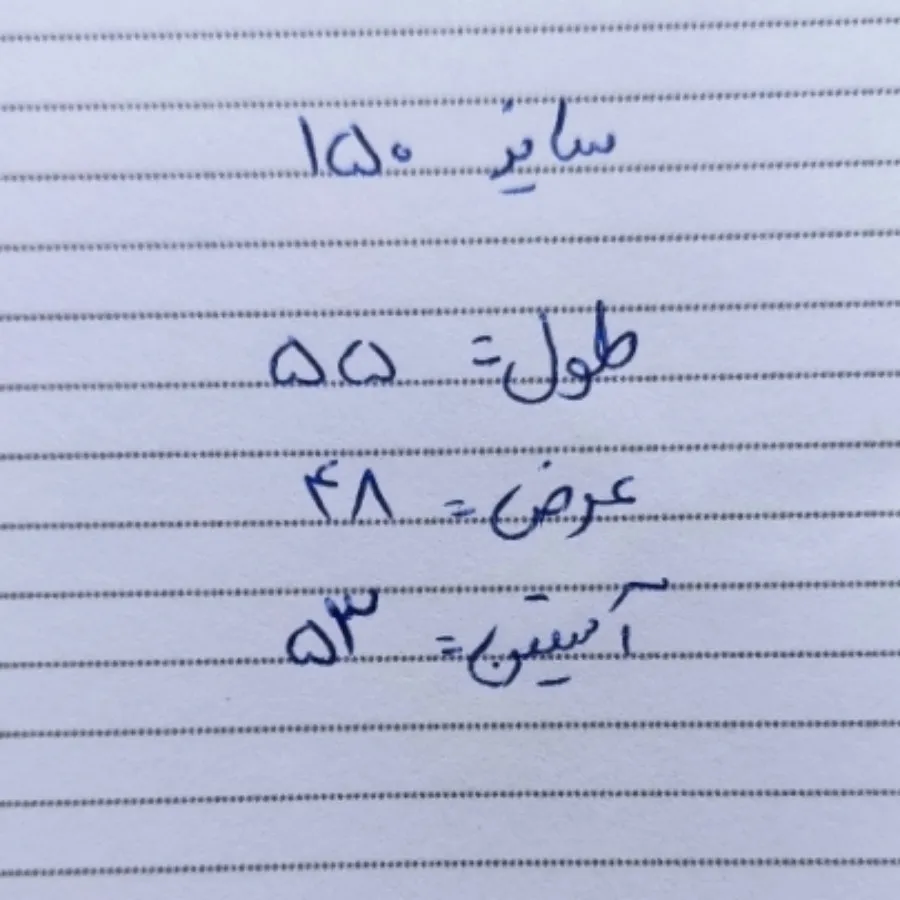 سایز ۱۵۰
طول= ۵۵
عرض= ۴۸
آستین= ۵۳